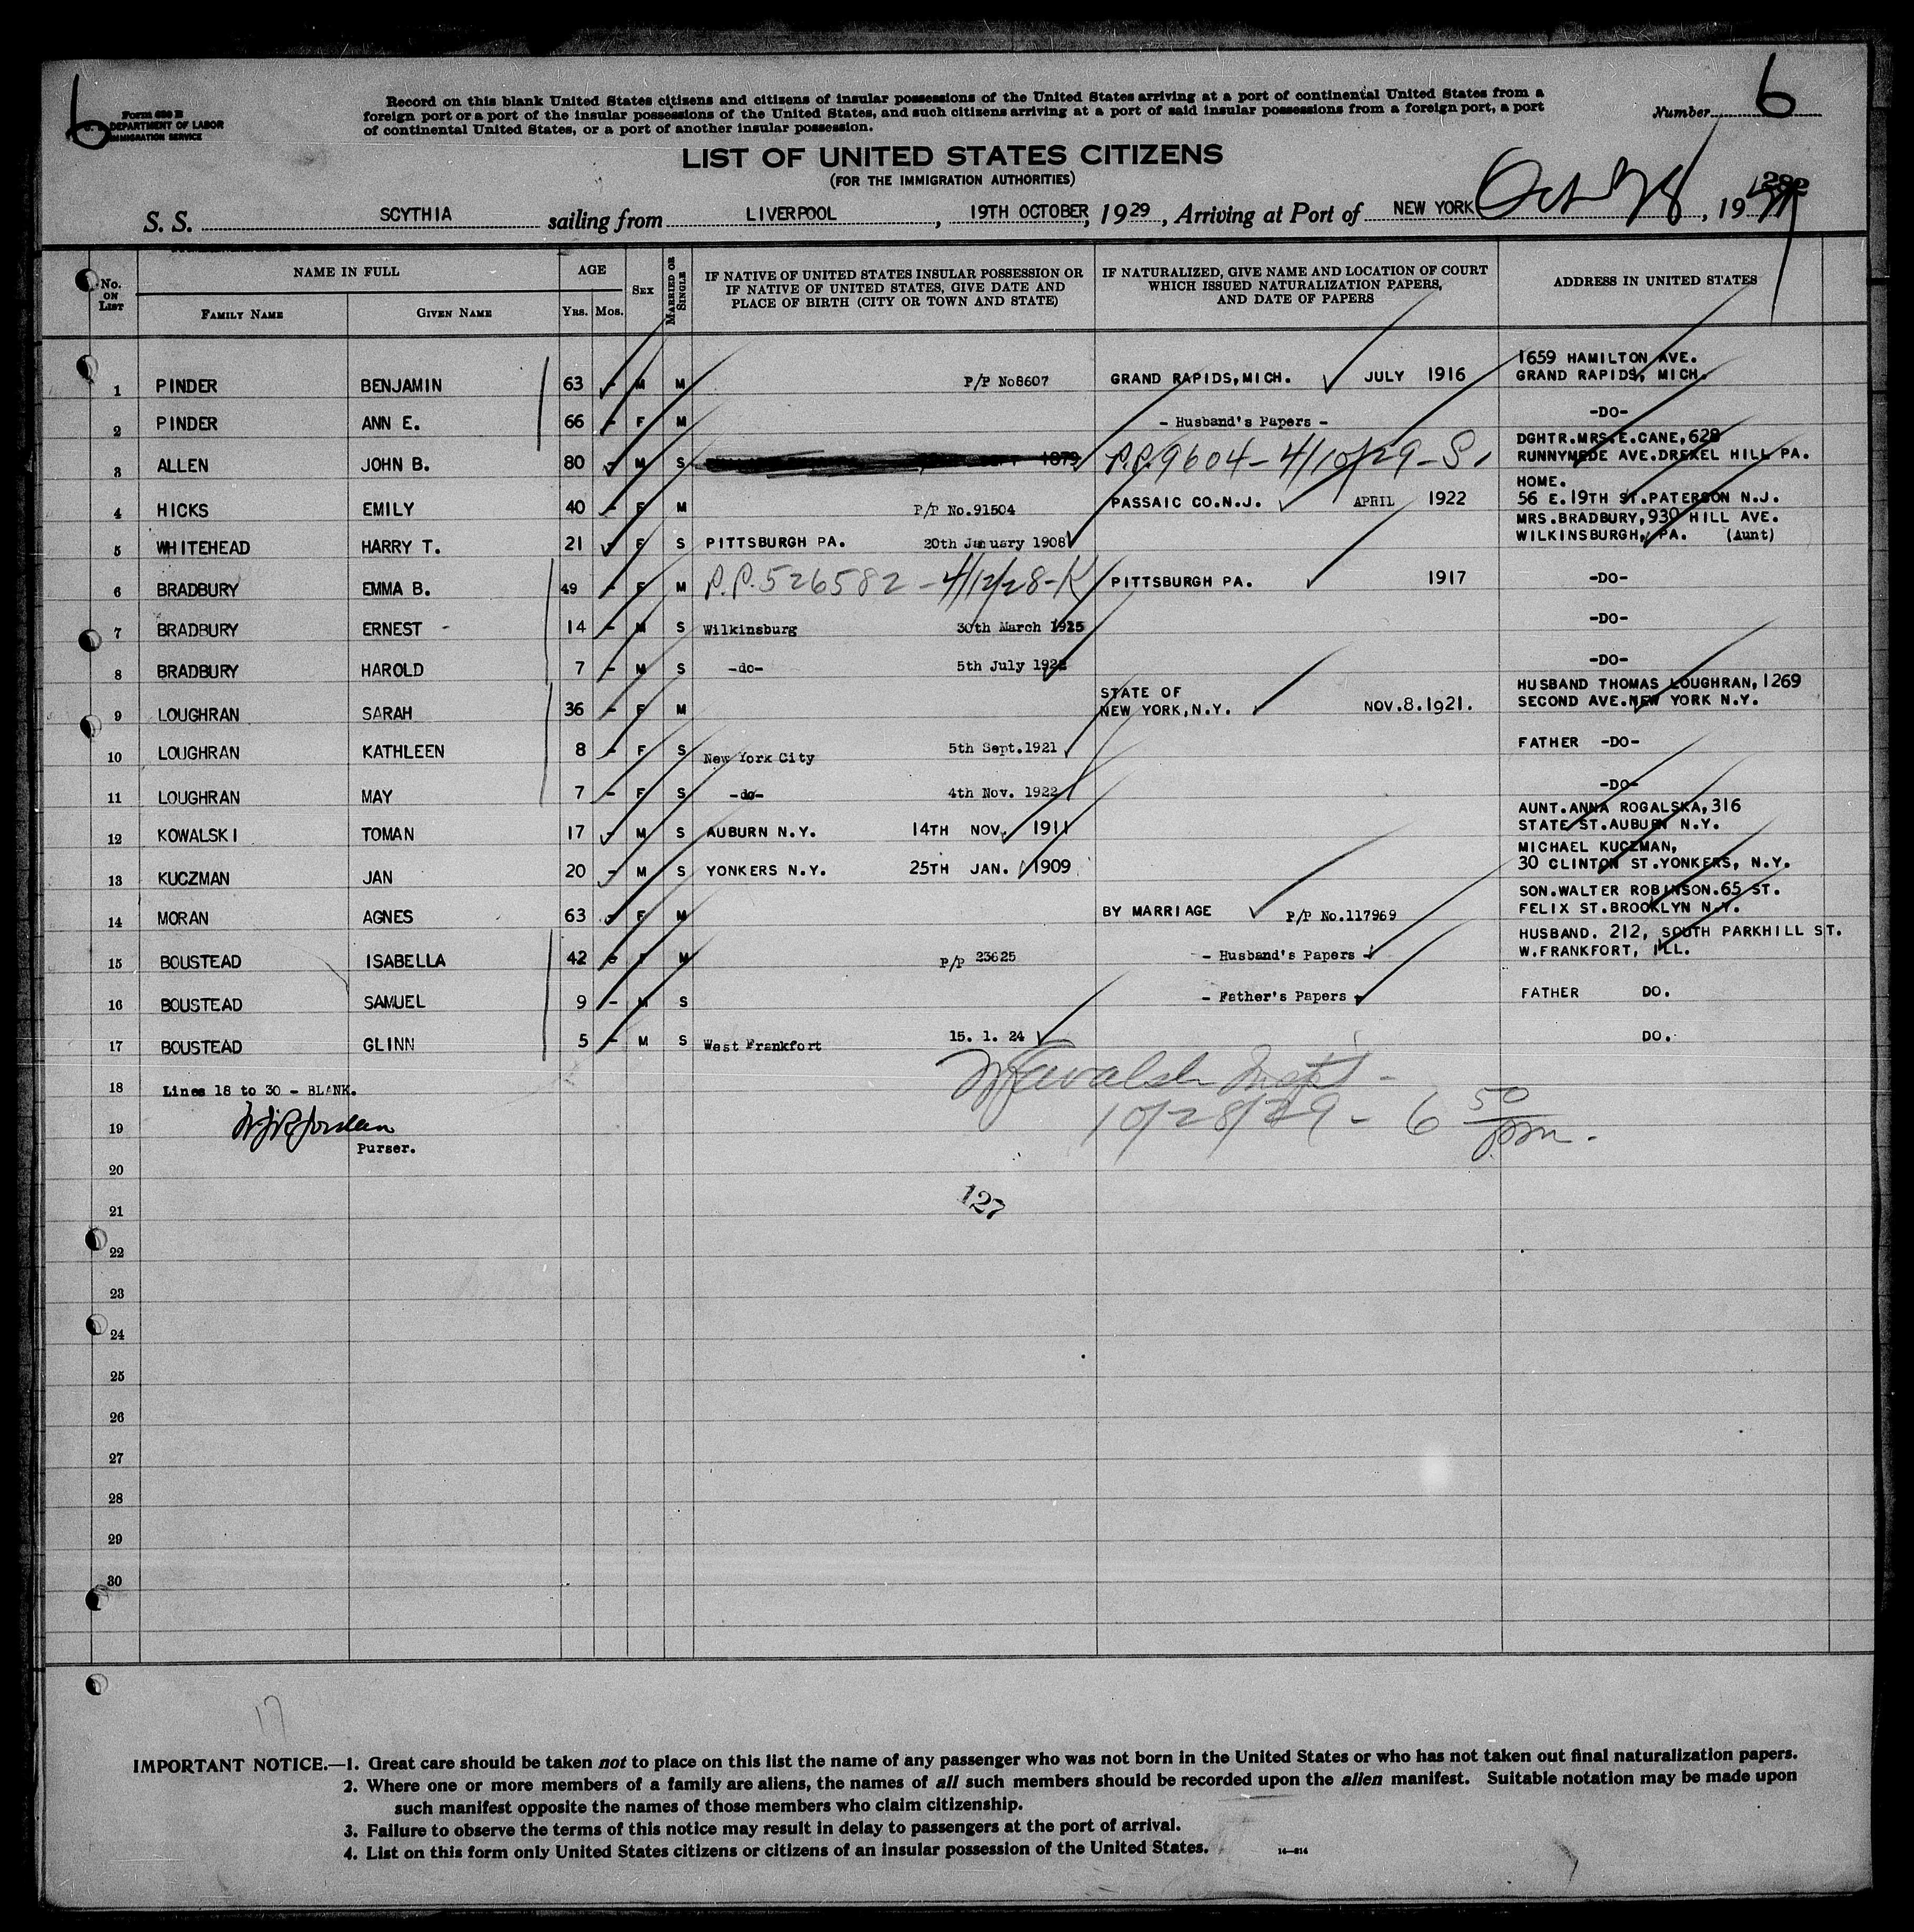 6
Form 630 B
U. S. DEPARTMENT OF LABOR
IMMIGRATION SERVICE
Record on this blank United States citizens and citizens of insular possessions of the United States arriving at a port of continental United States from a
foreign port or a port of the insular possessions of the United States, and such citizens arriving at a port of said insular possessions from a foreign port, a port
of continental United States, or a port of another insular possession.
Number 6
LIST OF UNITED STATES CITIZENS
(FOR THE IMMIGRATION AUTHORITIES)
282
S. S. SCYTHIA sailing from LIVERPOOL, 19TH OCTOBER, 1929, Arriving at Port of NEW YORK Oct 28, 19
No. ON LIST
NAME IN FULL
FAMILY NAME GIVEN NAME
AGE
YRS. MOS.
SEX
MARRIED OR SINGLE
IF NATIVE OF UNITED STATES INSULAR POSSESSION OR
IF NATIVE OF UNITED STATES, GIVE DATE AND
PLACE OF BIRTH (CITY OR TOWN AND STATE)
IF NATURALIZED, GIVE NAME AND LOCATION OF COURT
WHICH ISSUED NATURALIZATION PAPERS,
AND DATE OF PAPERS
ADDRESS IN UNITED STATES
1 PINDER BENJAMIN 63 - M M P/P No8607 GRAND RAPIDS, MICH. JULY 1916 1659 HAMILTON AVE.
GRAND RAPIDS, MICH.
2 PINDER ANN E. 66 - F M - Husband's Papers - -DO-
3 ALLEN JOHN B. 80 - M S 1879 P.P. 9604 - 4/10/29 - S. DGHTR.MRS.E.CANE, 628
RUNNYMEDE AVE.DREXEL HILL PA.
4 HICKS EMILY 40 - F M P/P No.91504 PASSAIC CO.N.J. APRIL 1922 HOME.
56 E.19TH ST.PATERSON N.J.
5 WHITEHEAD HARRY T. 21 - F S PITTSBURGH PA. 20th January 1908 MRS.BRADBURY, 930 HILL AVE.
WILKINSBURGH, PA. (Aunt)
6 BRADBURY EMMA B. 49 - F M P.P. 526582 - 4/12/28 - K PITTSBURGH PA. 1917 -DO-
7 BRADBURY ERNEST - 14 - M S Wilkinsburg 30th March 1915 -DO-
8 BRADBURY HAROLD 7 - M S -do- 5th July 1922 -DO-
9 LOUGHRAN SARAH 36 - F M STATE OF
NEW YORK, N.Y. NOV.8.1921. HUSBAND THOMAS LOUGHRAN, 1269
SECOND AVE.NEW YORK N.Y.
10 LOUGHRAN KATHLEEN 8 - F S New York City 5th Sept.1921 FATHER -DO-
11 LOUGHRAN MAY 7 - F S -do- 4th Nov. 1922 -DO-
12 KOWALSKI TOMAN 17 - M S AUBURN N.Y. 14TH NOV. 1911 AUNT.ANNA ROGALSKA, 316
STATE ST.AUBURN N.Y.
13 KUCZMAN JAN 20 - M S YONKERS N.Y. 25TH JAN. 1909 MICHAEL KUCZMAN,
30 CLINTON ST.YONKERS, N.Y.
14 MORAN AGNES 63 - F M BY MARRIAGE P/P No.117969 SON.WALTER ROBINSON.65 ST.
FELIX ST.BROOKLYN N.Y.
15 BOUSTEAD ISABELLA 42 - F M P/P 23625 - Husband's Papers - HUSBAND. 212, SOUTH PARKHILL ST.
W.FRANKFORT, ILL.
16 BOUSTEAD SAMUEL 9 - M S - Father's Papers - FATHER DO.
17 BOUSTEAD GLINN 5 - M S West Frankfort 15. 1. 24 DO.
18 Lines 18 to 30 - BLANK.
Walsh Inspt -
19 Jordan 10/28/29 - 6 50 pm.
Purser.
20
127
21
22
23
24
25
26
27
28
29
30
17
IMPORTANT NOTICE.—1. Great care should be taken not to place on this list the name of any passenger who was not born in the United States or who has not taken out final naturalization papers.
2. Where one or more members of a family are aliens, the names of all such members should be recorded upon the alien manifest. Suitable notation may be made upon
such manifest opposite the names of those members who claim citizenship.
3. Failure to observe the terms of this notice may result in delay to passengers at the port of arrival.
4. List on this form only United States citizens or citizens of an insular possession of the United States. 14—814